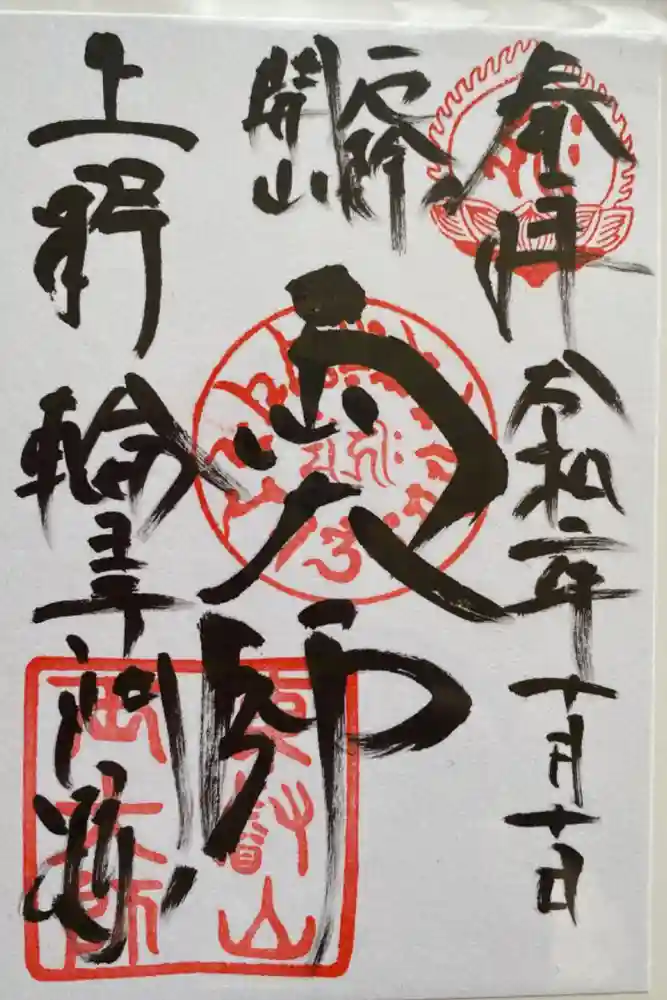 奉拝
令和二年十月十日
厄除
開山
両大師
上野
輪王寺門跡
東叡山
両大師